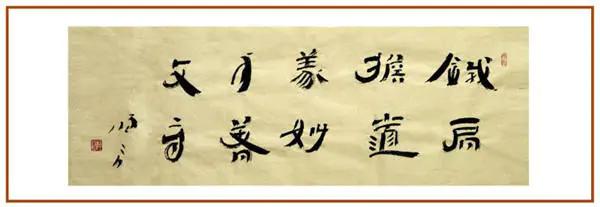 鐵肩
擔道
義妙
手著
文章